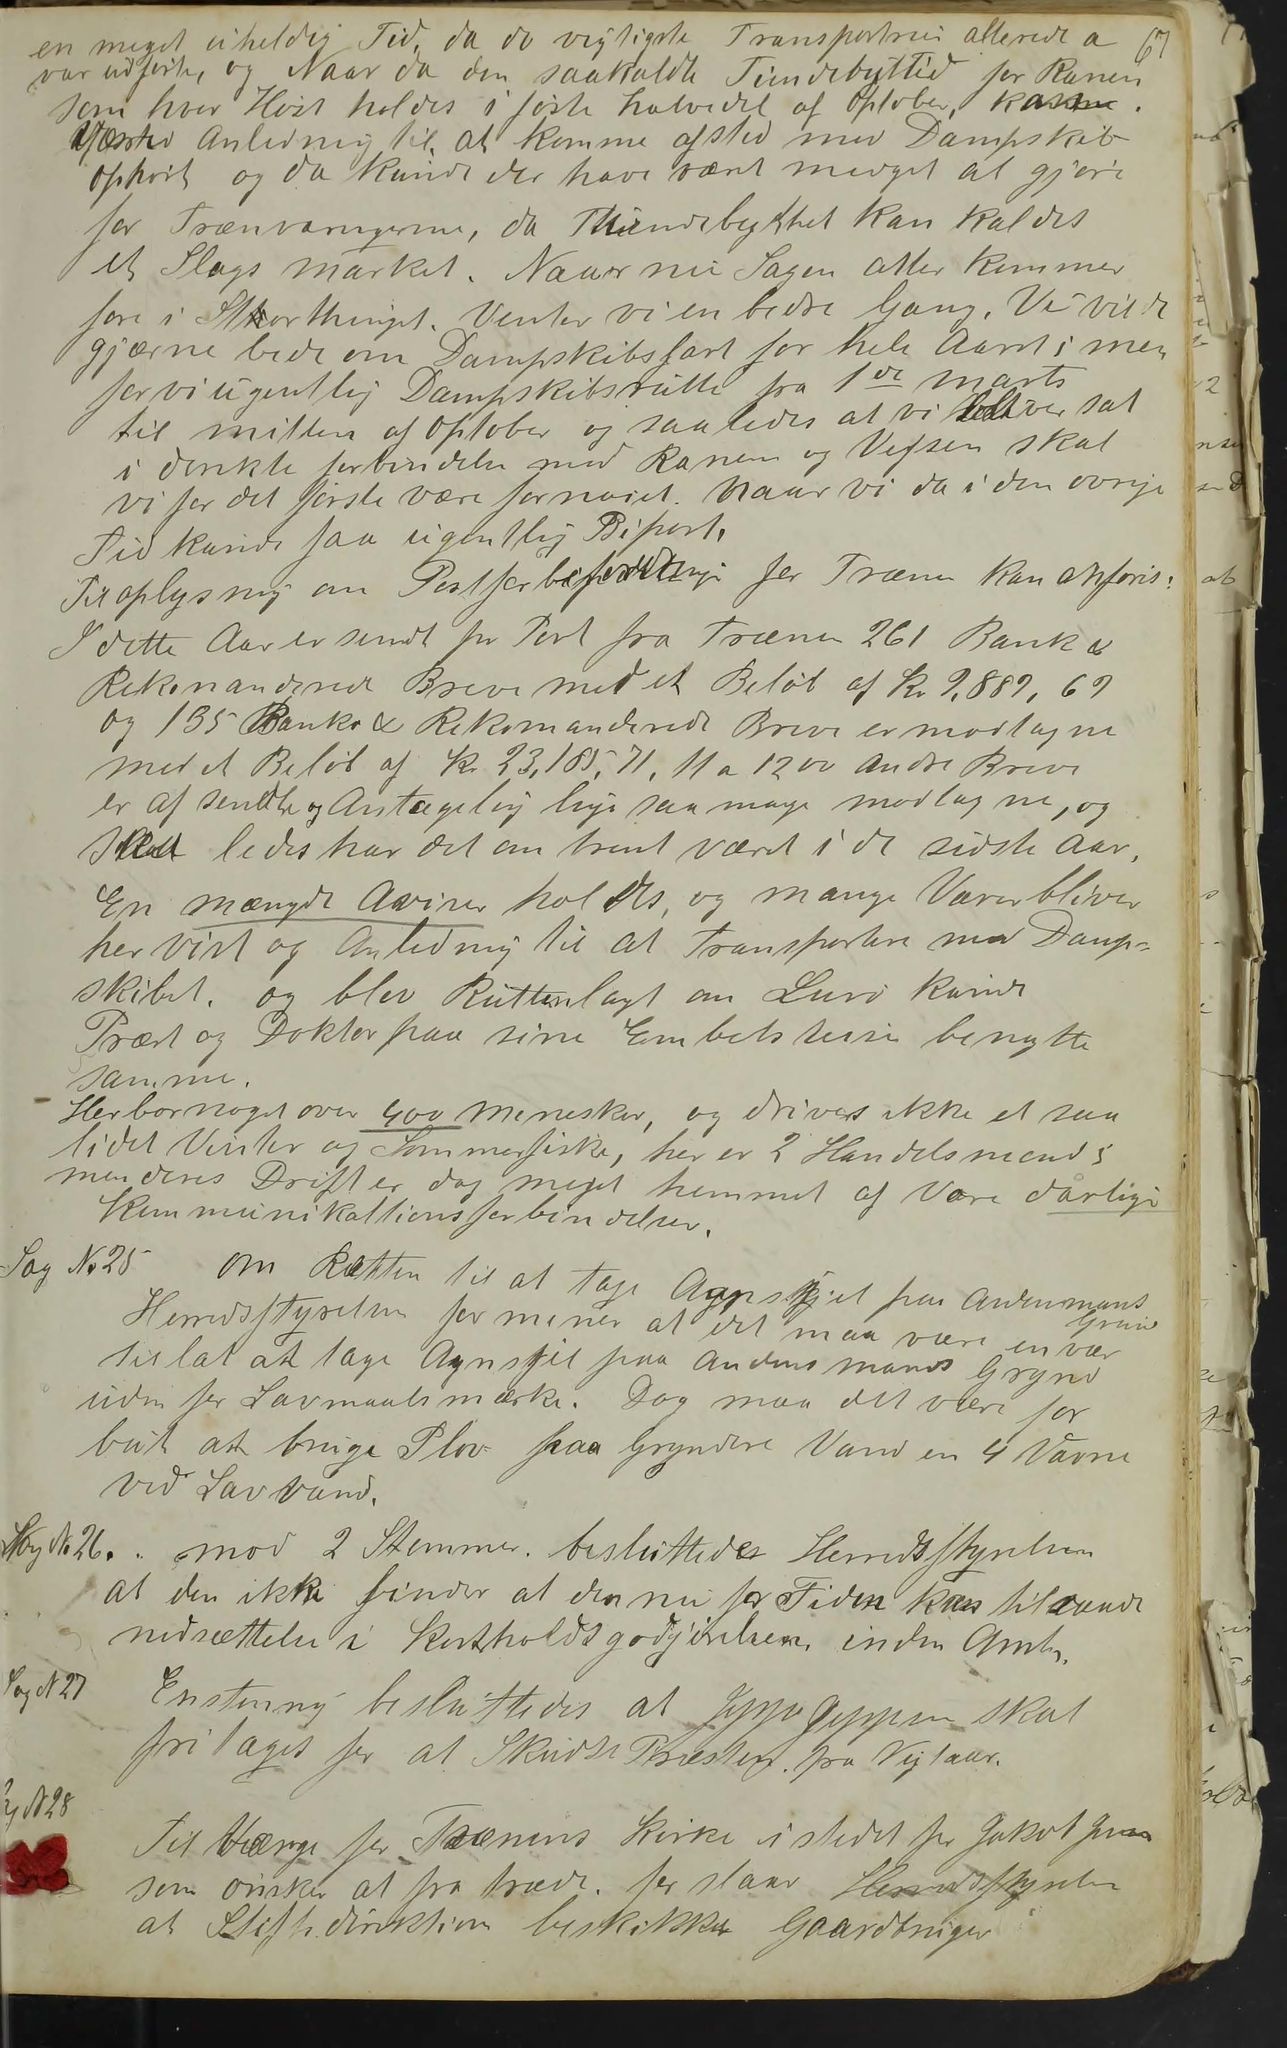 67
en meget uheldig Tid, da de vigtigste Transporter allerede a
var udførte, og Naar da den saakaldte Tiendebyttid for Ranen
som hver Høst holdes i første halvedel af Optober,
Anledning til at komme afsted med Dampskib
ophørt og da kunde der have været meeget at gjøre
for Trænværingerne, da Thiendebyttet kan kaldes
et Slags marked. Naar nu Sagen atter kommer
fore i Storthinget. Venter vi en bedre Gang. Vi vilde
gjærne bede om Dampskibsfart for hele Aaret; men
før vi ugentlig Dampskibsrutte fra 1de marts
til mitten af Optober og saaledes at vi bliver sat
i direkte forbindelse med Ranen og Vefsen skal
vi for det første være fornøiet. Naar vi da i den øvrige
Tid kunde faa ugentlig Bipost.
Til oplysning om Postforbefordringe for Trænen kan anføris:
I dette Aar er sendt pr Post fra Trænen 261 Bank &
Rekomanderede Breve med et Beløb af Kr 9,889, 69
og 135 Banko & Rekomanderede Breve er modtagne
med et Beløb af Kr 23,185,71. 11 a 1200 andre Breve
er af sendte og Antagelig lige saa mage modtagne, og
ledes har det om trent været i de sidste Aar.
En mængde Aviser holdes, og mange Varer bliver
her vist og Anledning til at Transportere med Damp-
skibet. og blev Rutten lagt om Lurø kunde
Præst og Doktor paa sine Embets reise benytte
samme.
Her bor noget over 400 Menesker, og drives ikke et saa
lidet Vinter og Sommerfiske, her er 2 Handelsmend;
men deres Drift er dog meget hemmet af Vore dårlige
Kommunikattionsforbindelser.
Sag No 25 Om Retten til at tage Agnskjel paa Andenmans
Grund
Herredsstyrelsen formener at det maa være en vær
tillat at tage Agnskjel paa Andens mands Grund
uden for Lavmaals mærke. Dog maa det være for
but at bruge Plov paa Gryndere Vand en 4 Favne
ved Lavvand.
Sag No 26. mod 2 Stemmer. besluttedes Herredsstyrelsen
at den ikke finder at den nu for Tiden kan tilraade
nedsættelse i Kostholdsgodgjørelsen inden Amtet.
Sag N 27 Enstemig besluttedes at Jeppe Jeppsen skal
fritages for at Skudse Præsten fra Nytaar.
Sag N 28
Til Værge for Trænens Kirke i stedet for Jakob
som ønsker at fra træde. for slaar Herredsstyrelsen
at Stiftsdirektion beskikker Gaardbruger